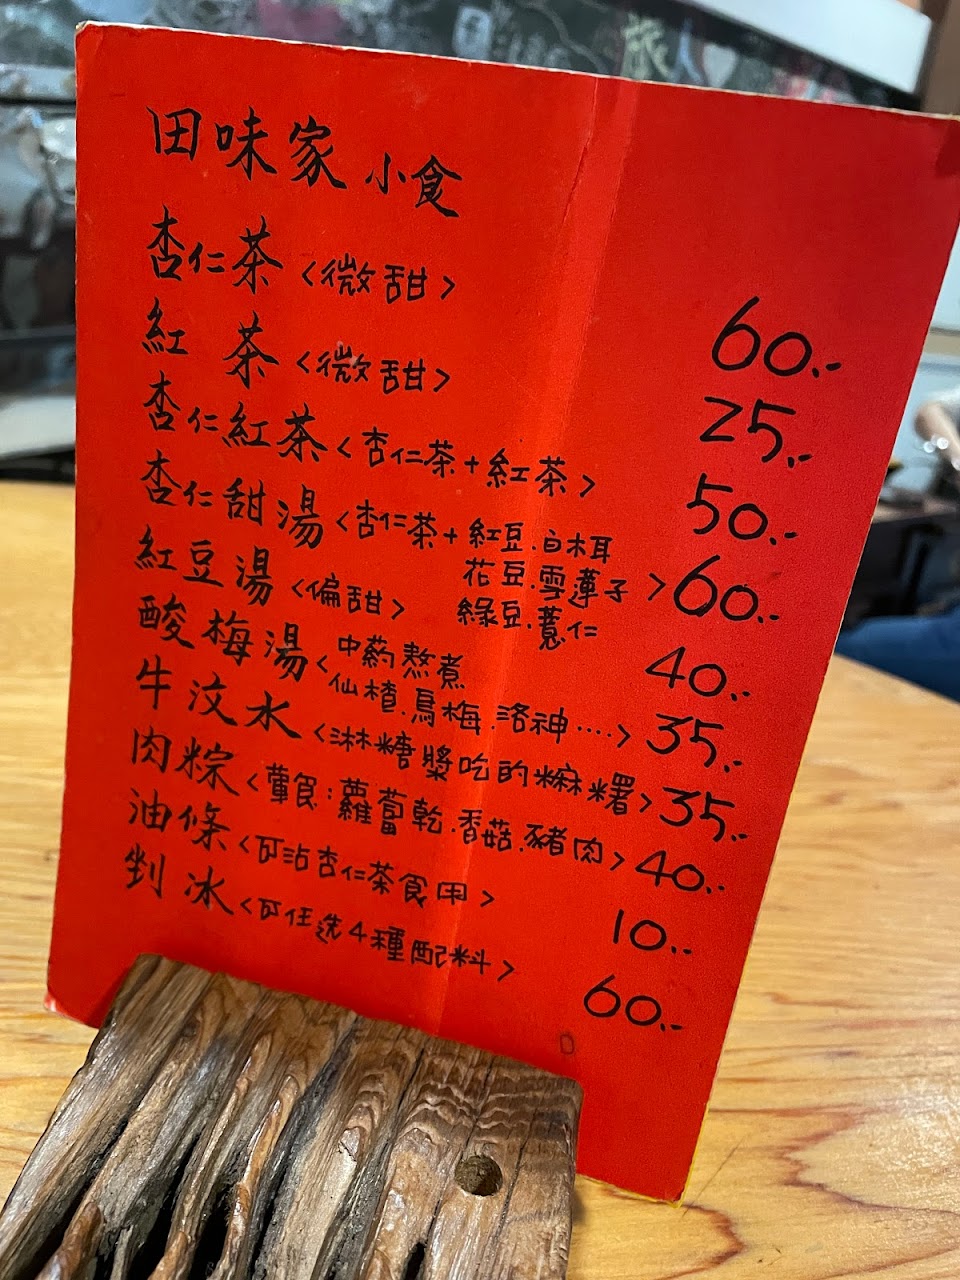 田味家 小食
杏仁茶<微甜> 60.-
紅 茶<微甜> 25.-
杏仁紅茶<杏仁茶+紅茶> 50.-
杏仁甜湯<杏仁茶+紅豆.白木耳
花豆.雪蓮子> 60.-
綠豆.薏仁
紅豆湯<偏甜> 40.-
酸梅湯<中药熬煮
仙楂.烏梅.洛神....> 35.-
牛汶水<淋糖漿吃的麻糬> 35.-
肉粽<葷食:蘿蔔乾.香菇.豬肉> 40.-
油條<可沾杏仁茶食用> 10.-
剉冰<可任选4種配料> 60.-